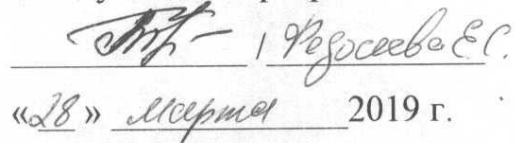 / Федосеева Е.С.
«28» марта 2019 г.